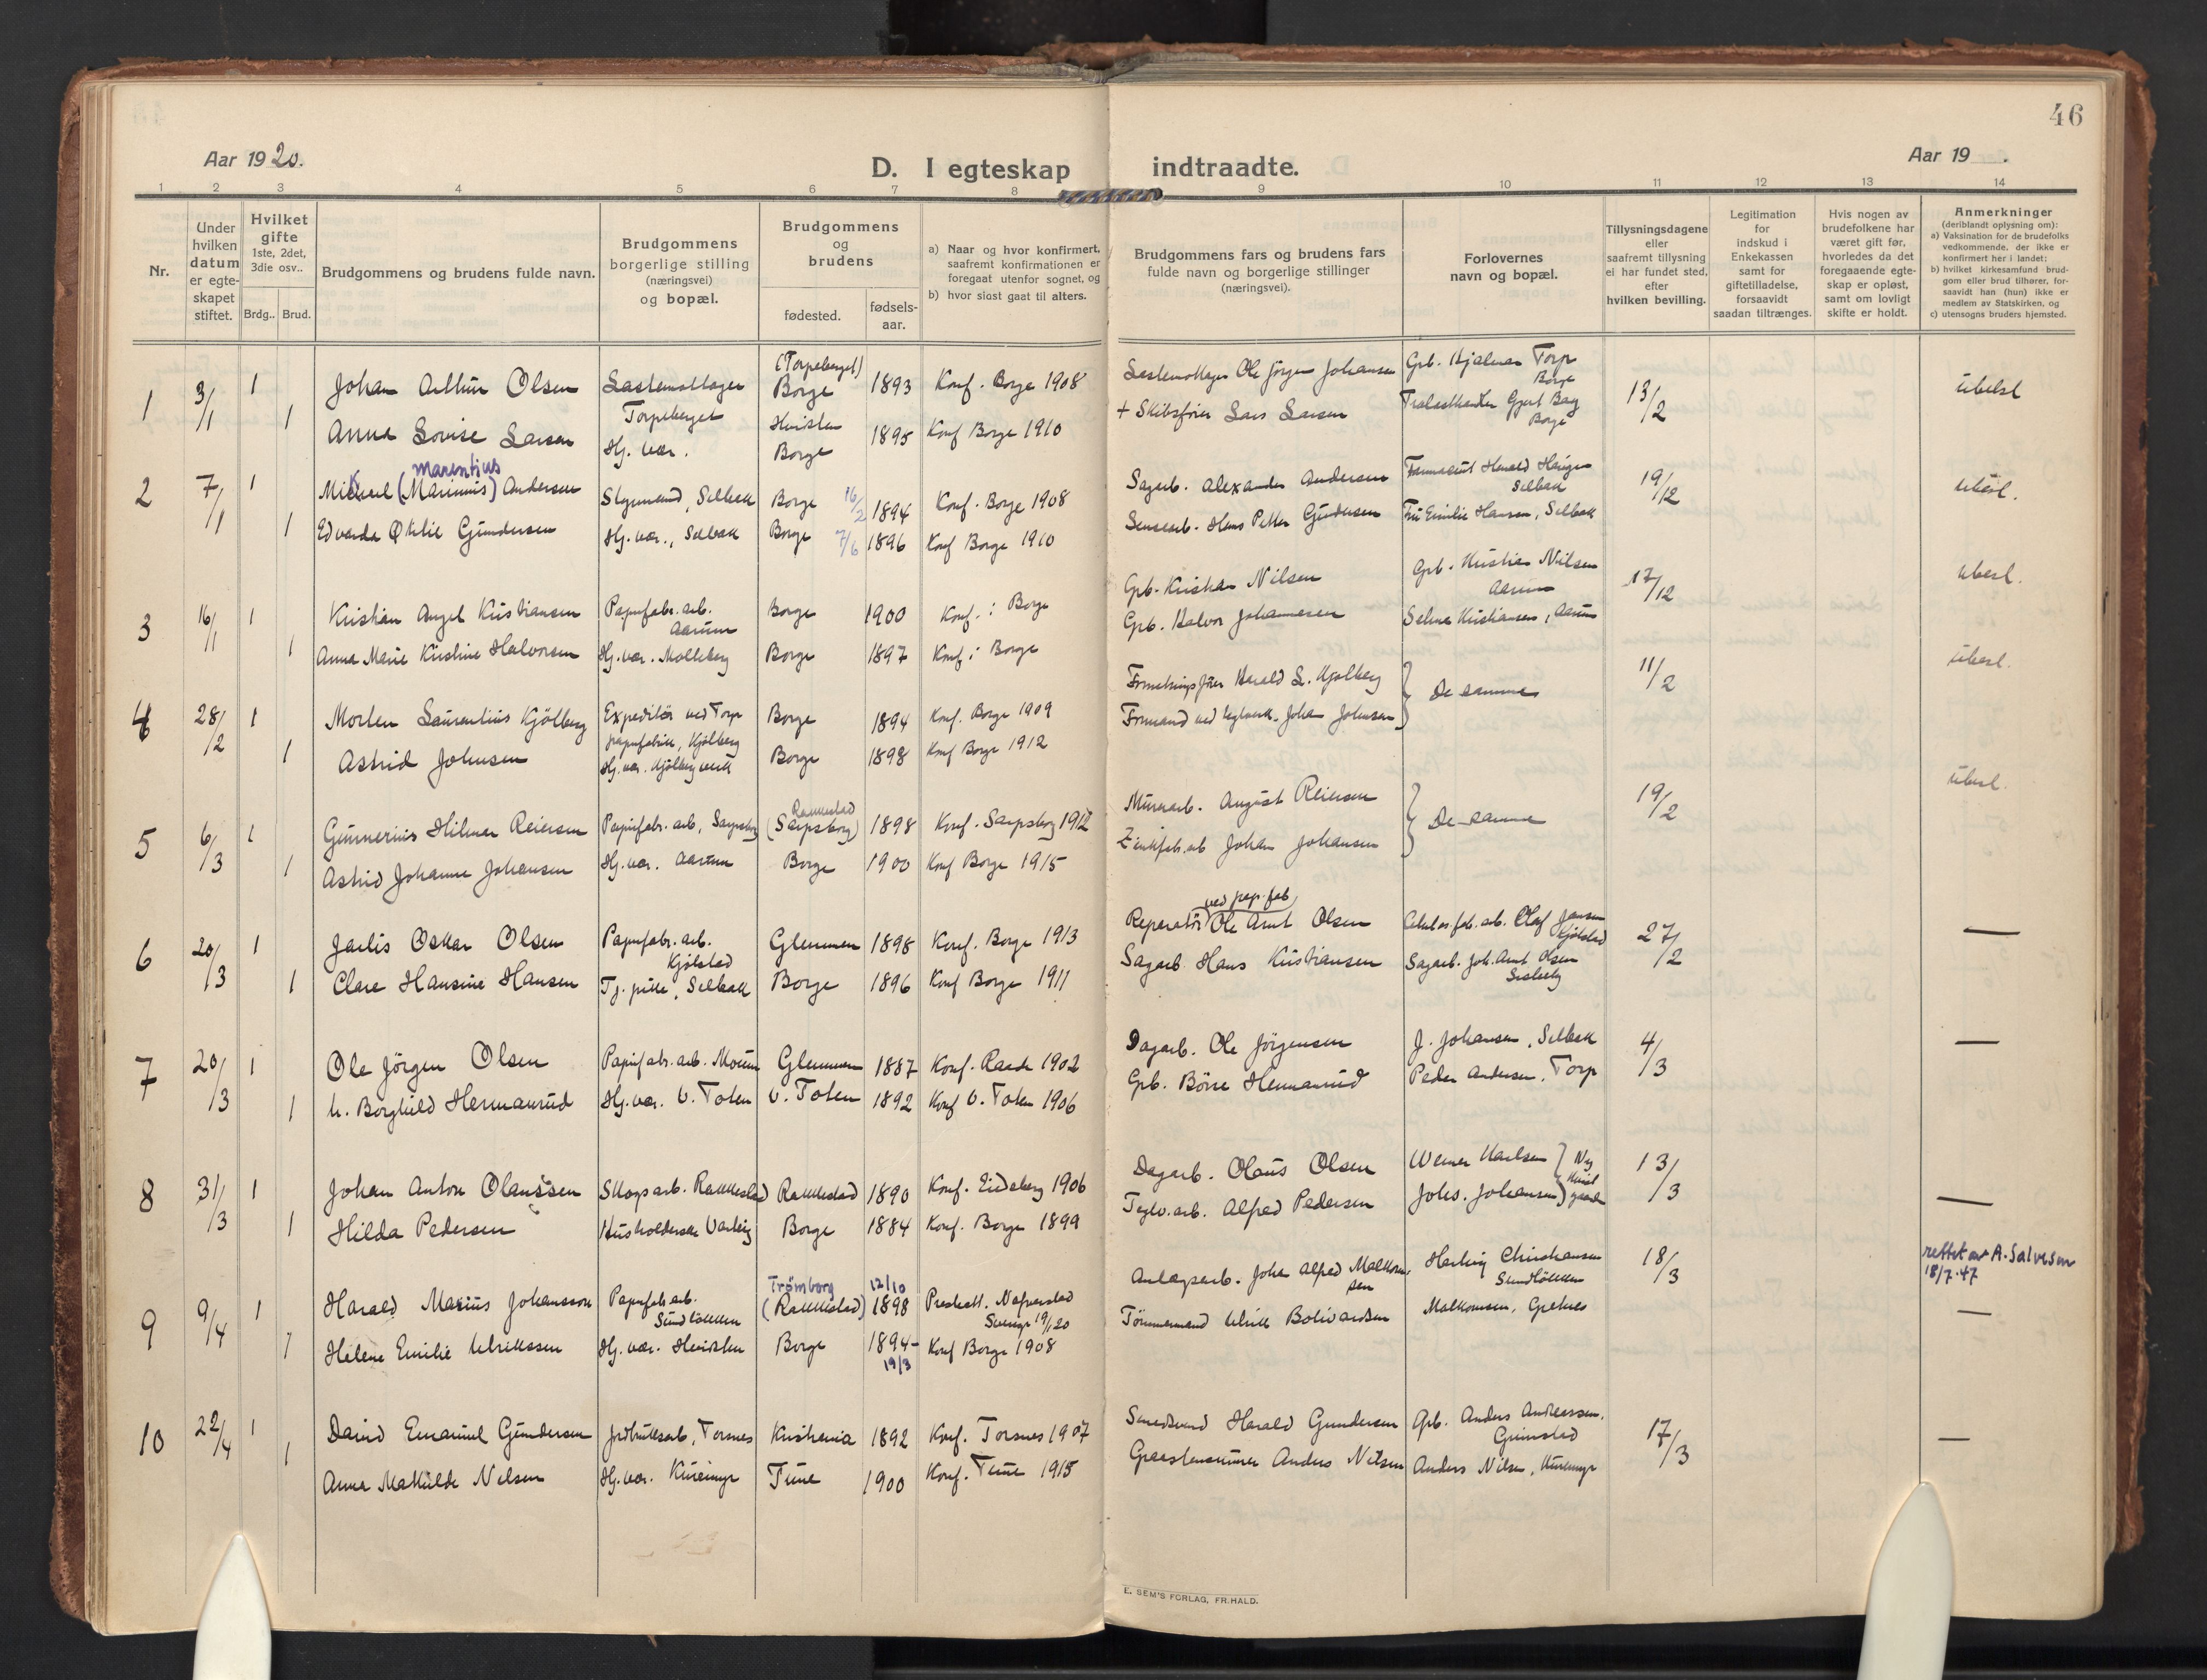 46
Aar 1920.
D. I egteskap indtraadte.
Aar 19 .
1 2 3 4 5 6 7 8 9 10 11 12 13 14
Nr.
Under hvilken datum er egteskapet stiftet.
Hvilket gifte 1ste, 2det, 3die osv..
Brdg.. Brud.
Brudgommens og brudens fulde navn.
Brudgommens borgerlige stilling (næringsvei) og bopæl.
Brudgommens og brudens
fødested.
fødselsaar.
a) Naar og hvor konfirmert, saafremt konfirmationen er foregaat utenfor sognet, og
b) hvor sidst gaat til alters.
Brudgommens fars og brudens fars fulde navn og borgerlige stillinger (næringsvei).
Forlovernes navn og bopæl.
Tillysningsdagene eller saafremt tillysning ei har fundet sted, efter hvilken bevilling.
Legitimation for indskud i Enkekassen samt for giftetilladelse, forsaavidt saadan tiltrænges.
Hvis nogen av brudefolkene har været gift før, hvorledes da det foregaaende egteskap er opløst, samt om lovligt skifte er holdt.
Anmerkninger (deriblandt oplysning om):
a) Vaksination for de brudefolks vedkommende, der ikke er konfirmert her i landet;
b) hvilket kirkesamfund brudgom eller brud tilhører, forsaavidt han (hun) ikke er medlem av Statskirken, og
c) utensogns bruders hjemsted.
1 3/1 1 Johan Arthur Olsen Lastemottager Torpeberget (Torpeberget) Borge 1893 Konf. Borge 1908 Lastemottager Ole Jörgen Johansen Grb. Hjalmar Torp Borge 13/2 ubesl
1 Anna Lovise Larsen Hj. vær. Borge 1895 Konf Borge 1910 + Skibsfører Lars Larsen Borge
2 7/1 1 Mikael (Marinius) Marentius Andersen Selbak Borge 16/2 1894 Konf. Borge 1908 Sagarb. Alexander Andersen Selbak 19/12 ubesl.
1 Edvarda Otilie Gundersen Hj. vær., Selbak Borge 7/6 1896 Konf Borge 1910 Hans Petter Gundersen Fru Emilie Hansen, Selbak
3 16/1 1 Kristian Angel Kristiansen Papirfabr. arb. Aarum Borge 1900 Konf. i Borge Grb. Kristian Nilsen Grb. Kristian Nilsen Aarum 17/12 ubesl.
1 Anna Marie Kristine Halvorsen Hj. vær. Molleberg Borge 1897 Konf. i Borge Grb. Halvor Johannesen Selma Kristiansen, Aarum
4 28/2 1 Morten Laurentius Kjölberg Expeditör ved Torp papirfabrik, Kjölberg Borge 1894 Konf. Borge 1909 Harald L. Kjölberg } De samme 11/2 ubesl.
1 Astrid Johnsen Hj. vær. Kjölberg Borge 1898 Konf Borge 1912 Formand ved teglverk. Johan Johnsen
5 6/3 1 Gunnerius Hilmar Reiersen Papirfabr. arb, Sarpsborg Rakkestad (Sarpsborg) 1898 Konf. Sarpsborg 1912 Murerarb. August Reiersen } De samme 19/2 ubesl.
1 Astrid Johanne Johansen Hj. vær. Aarum Borge 1900 Konf Borge 1915 Zinkfab. arb Johan Johansen
6 20/3 1 Jarlis Oskar Olsen Papirfabr. arb. Kjölstad Glemmen 1898 Konf. Borge 1913 Reparatör ved pap. fab. Ole Arnt Olsen Olaf Jansen Kjölstad 27/2 —
1 Clare Hansine Hansen Tj. pike, Selbak Borge 1896 Konf Borge 1911 Sagarb. Hans Kristiansen Sagarb. Joh. Arnt Olsen
7 20/3 1 Ole Jörgen Olsen Papirfabr. arb. Moum Glemmen 1887 Konf. Raade 1902 Dagarb. Ole Jörgensen J. Johansen, Selbak 4/3 —
1 Borghild Hermanrud Hj. vær. V. Toten V. Toten 1892 Konf V. Toten 1906 Grb. Börre Hermanrud Peder Andersen, Torp
8 31/3 1 Johan Anton Olaussen Skogsarb. Rakkestad Rakkestad 1890 Konf. Eidsberg 1906 Dagarb. Olaus Olsen Werner Karlsen } 13/3 —
1 Hilda Pedersen Husholderske Borge 1884 Konf. Borge 1899 Teglv. arb. Alfred Pedersen Johs. Johansen
9 9/4 1 Harald Marius Johansson Papirfab. arb. Sundlökken Trömborg (Rakkestad) 12/10 1898 Prestatt. Nafverstad Sverige 19/1 20 Anlægsarb. Johan Alfred Malkomsen Christiansen Sundlökken 18/3 rettet av A. Salvesen 18/7-47
1 Helene Emilie Ulrikssen Hj. vær. Borge 1894 19/3 Konf Borge 1908 Tömmermand Ulrik Bolivardsen Malkomsen, Grelnes —
10 22/4 1 David Emanuel Gundersen Jordbruksarb, Torsnes Kristiania 1892 Konf. Torsnes 1907 Harald Gundersen Grb. Anders Andreassen. Grimstad 17/3 —
1 Anna Mathilde Nilsen Hj. vær. Tune 1900 Konf. Tune 1915 Anders Nilsen Anders Nilsen,
E. SEM'S FORLAG, FR.HALD.